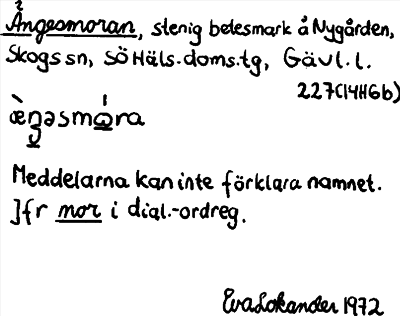 Ångesmoran, stenig betesmark å Nygården,
Skogs sn, SÖ Häls. doms.tg, Gävl. l.
227(14H6b)
æ̀ŋəsmɷ́ra
Meddelarna kan inte förklara namnet.
Jfr mor i dial.-ordreg.
Eva Lokander 1972